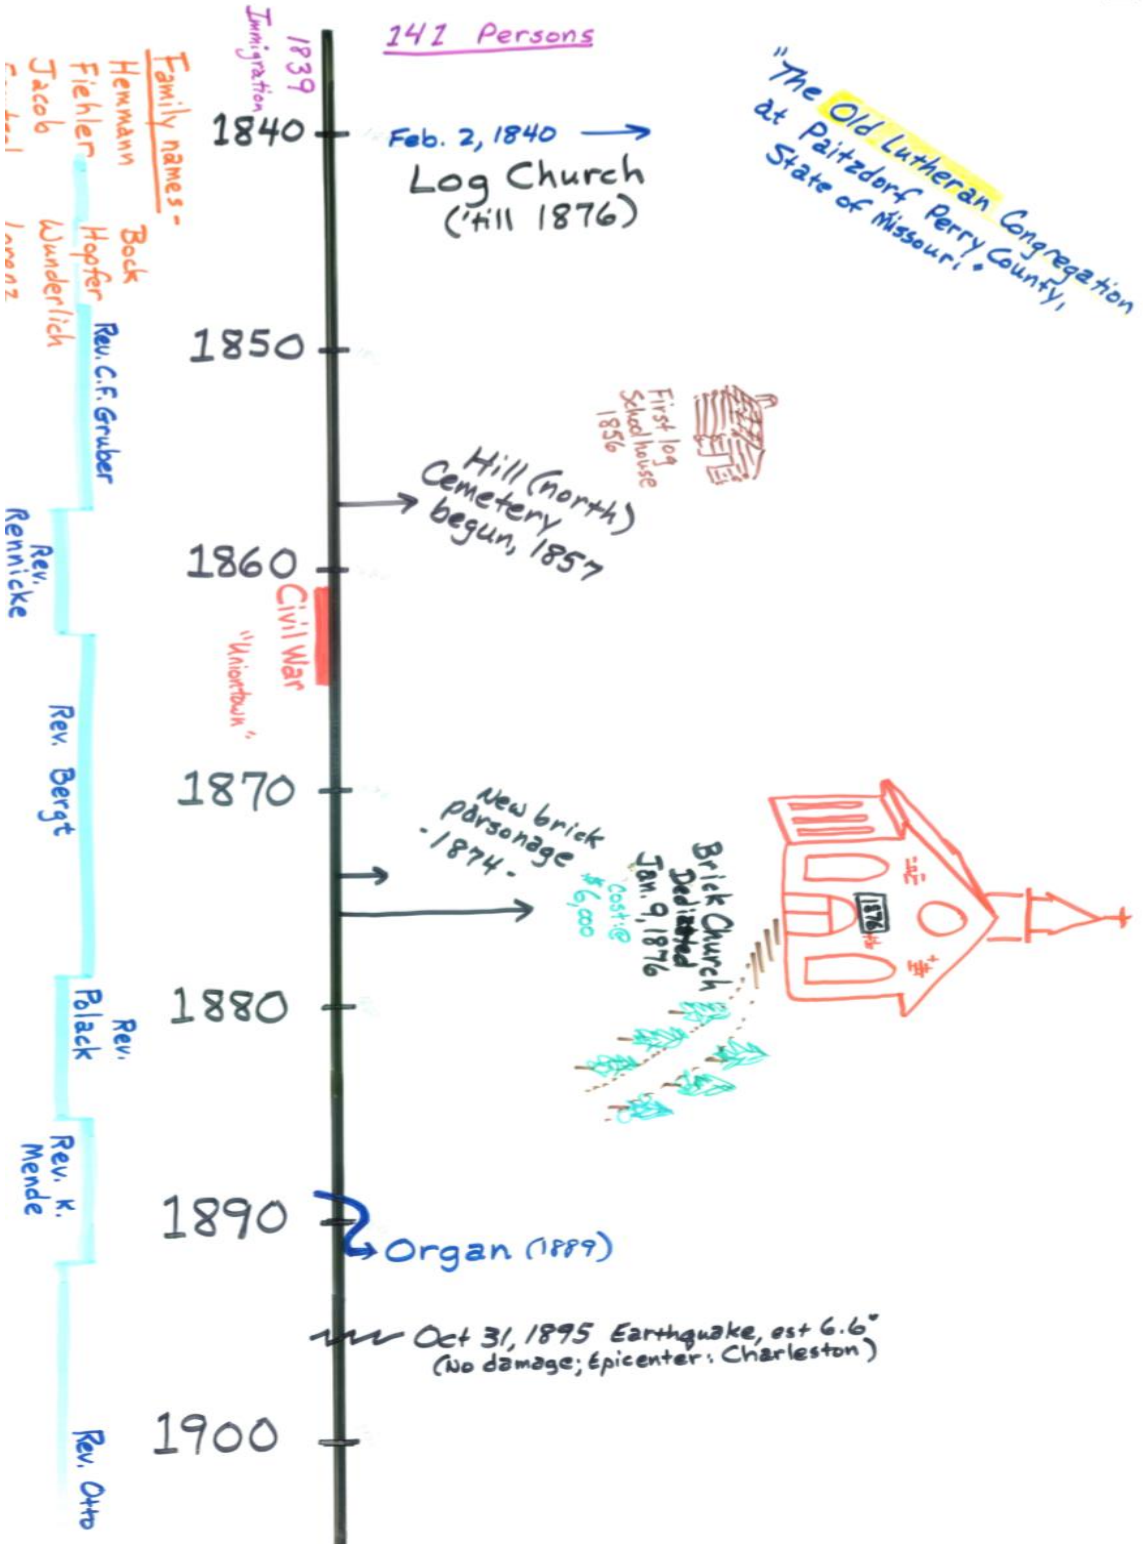 141 Persons
1839
Immigration
"The Old Lutheran Congregation
at Paitzdorf Perry County,
State of Missouri."
Family names-
Hemmann Bock
Fiehler Hopfer
Jacob Wunderlich
1840
Feb. 2, 1840
Log Church
('till 1876)
1850
Rev. C.F. Gruber
First log
Schoolhouse
1856
Hill (north)
Cemetery
begun, 1857
1860
Rev.
Rennicke
Civil War
"Uniontown"
Rev. Bergt
1870
New brick
parsonage
-1874-
Brick Church
Dedicated
Jan. 9, 1876
Cost:@
$6,000
1876
1880
Rev.
Polack
Rev. K.
Mende
1890
Organ (1889)
Oct 31, 1895 Earthquake, est 6.6"
(No damage; Epicenter: Charleston)
1900
Rev. Otto